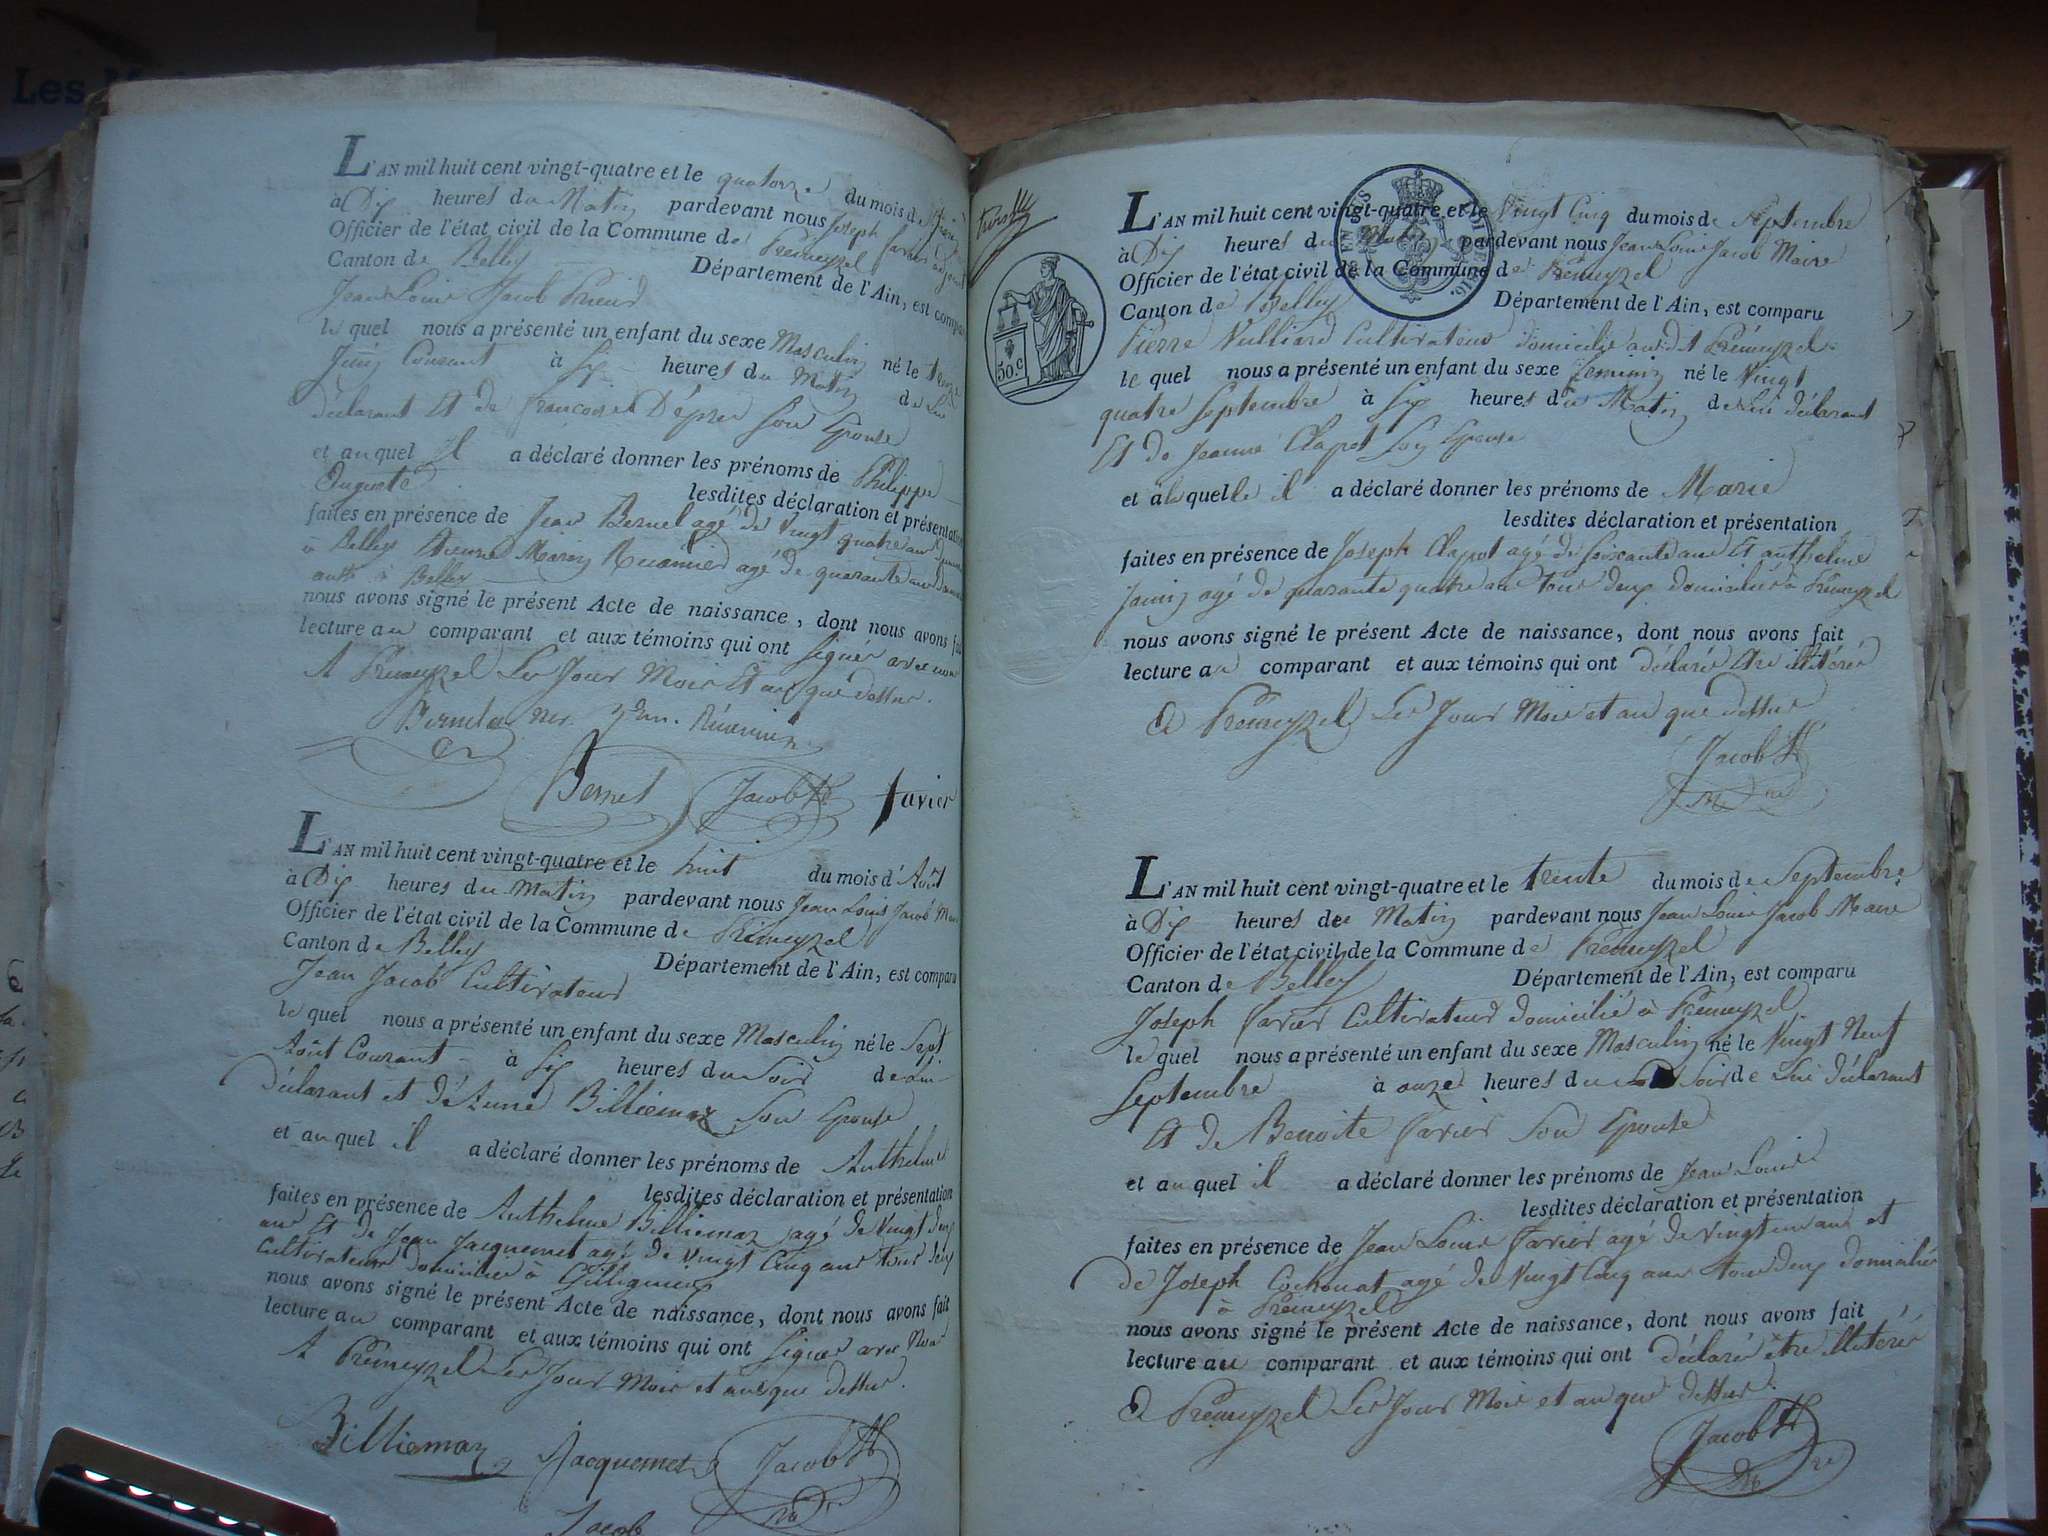 Les
L'AN mil huit cent vingt-quatre et le quatorze du mois de
à Dix heures du Matin pardevant nous Joseph Favier adjoint
Officier de l'état civil de la Commune de Prémeyzel
Canton de Belley Département de l'Ain, est comparu
Jean Louis Jacob
le quel nous a présenté un enfant du sexe Masculin né le treize
Juin Courant à Six heures du Matin de Lui
déclarant Et de francoise Dépres Son Epouse
et au quel Il a déclaré donner les prénoms de Philippe
Auguste lesdites déclaration et présentation
faites en présence de Jean Bernet agé de Vingt quatre ans
à Belley Etienne Marin agé de quarante ans
à Belley
nous avons signé le présent Acte de naissance, dont nous avons fait
lecture au comparant et aux témoins qui ont Signés avec nous
A Prémeyzel Les Jour Mois Et an que dessus.
Bernet Jacob Favier
L'AN mil huit cent vingt-quatre et le huit du mois d'Août
à Dix heures du Matin pardevant nous Jean Louis Jacob Maire
Officier de l'état civil de la Commune de Prémeyzel
Canton de Belley Département de l'Ain, est comparu
Jean Jacob Cultivateur
le quel nous a présenté un enfant du sexe Masculin né le Sept
Août Courant à Six heures du Soir de Lui
Déclarant et d'Anne Billiemaz Son Epouse
et au quel il a déclaré donner les prénoms de Anthelme
lesdites déclaration et présentation
faites en présence de Anthelme Billiemaz agé de Vingt deux
ans Et de Jean Jacquemet agé de Vingt Cinq ans tous deux
Cultivateurs domiciliés à
nous avons signé le présent Acte de naissance, dont nous avons fait
lecture au comparant et aux témoins qui ont Signés avec Nous
A Prémeyzel Les Jour Mois et an que dessus.
Billiemaz Jacquemet Jacob
Jacob
50.C
L'AN mil huit cent vingt-quatre et le Vingt Cinq du mois de Septembre
à Dix heures du Matin pardevant nous Jean Louis Jacob Maire
Officier de l'état civil de la Commune de Prémeyzel
Canton de Belley Département de l'Ain, est comparu
Pierre Vulliard Cultivateur domicilié audit Prémeyzel
le quel nous a présenté un enfant du sexe feminin né le Vingt
quatre Septembre à Six heures du Matin de Lui déclarant
Et de Jeanne Clapot Son Epouse
et à la quelle il a déclaré donner les prénoms de Marie
lesdites déclaration et présentation
faites en présence de Joseph Clapot agé de Soixante ans Et anthelme
Janin agé de quarante quatre ans tous deux domiciliés à Prémeyzel
nous avons signé le présent Acte de naissance, dont nous avons fait
lecture au comparant et aux témoins qui ont déclaré être illitérés
A Prémeyzel Les Jour Mois et an que dessus
Jacob
L'AN mil huit cent vingt-quatre et le trente du mois de Septembre
à Dix heures de Matin pardevant nous Jean Louis Jacob Maire
Officier de l'état civil de la Commune de Prémeyzel
Canton de Belley Département de l'Ain, est comparu
Joseph Favier Cultivateur domicilié à Prémeyzel
le quel nous a présenté un enfant du sexe Masculin né le Vingt Neuf
Septembre à onze heures du Soir de Lui déclarant
Et de Benoite Favier Son Epouse
et au quel il a déclaré donner les prénoms de Jean Louis
lesdites déclaration et présentation
faites en présence de Jean Louis Favier agé de Vingt un ans et
de Joseph Cochonat agé de Vingt Cinq ans tous deux domiciliés
à Prémeyzel
nous avons signé le présent Acte de naissance, dont nous avons fait
lecture au comparant et aux témoins qui ont déclaré être illitérés
A Prémeyzel Les Jour Mois et an que dessus.
Jacob